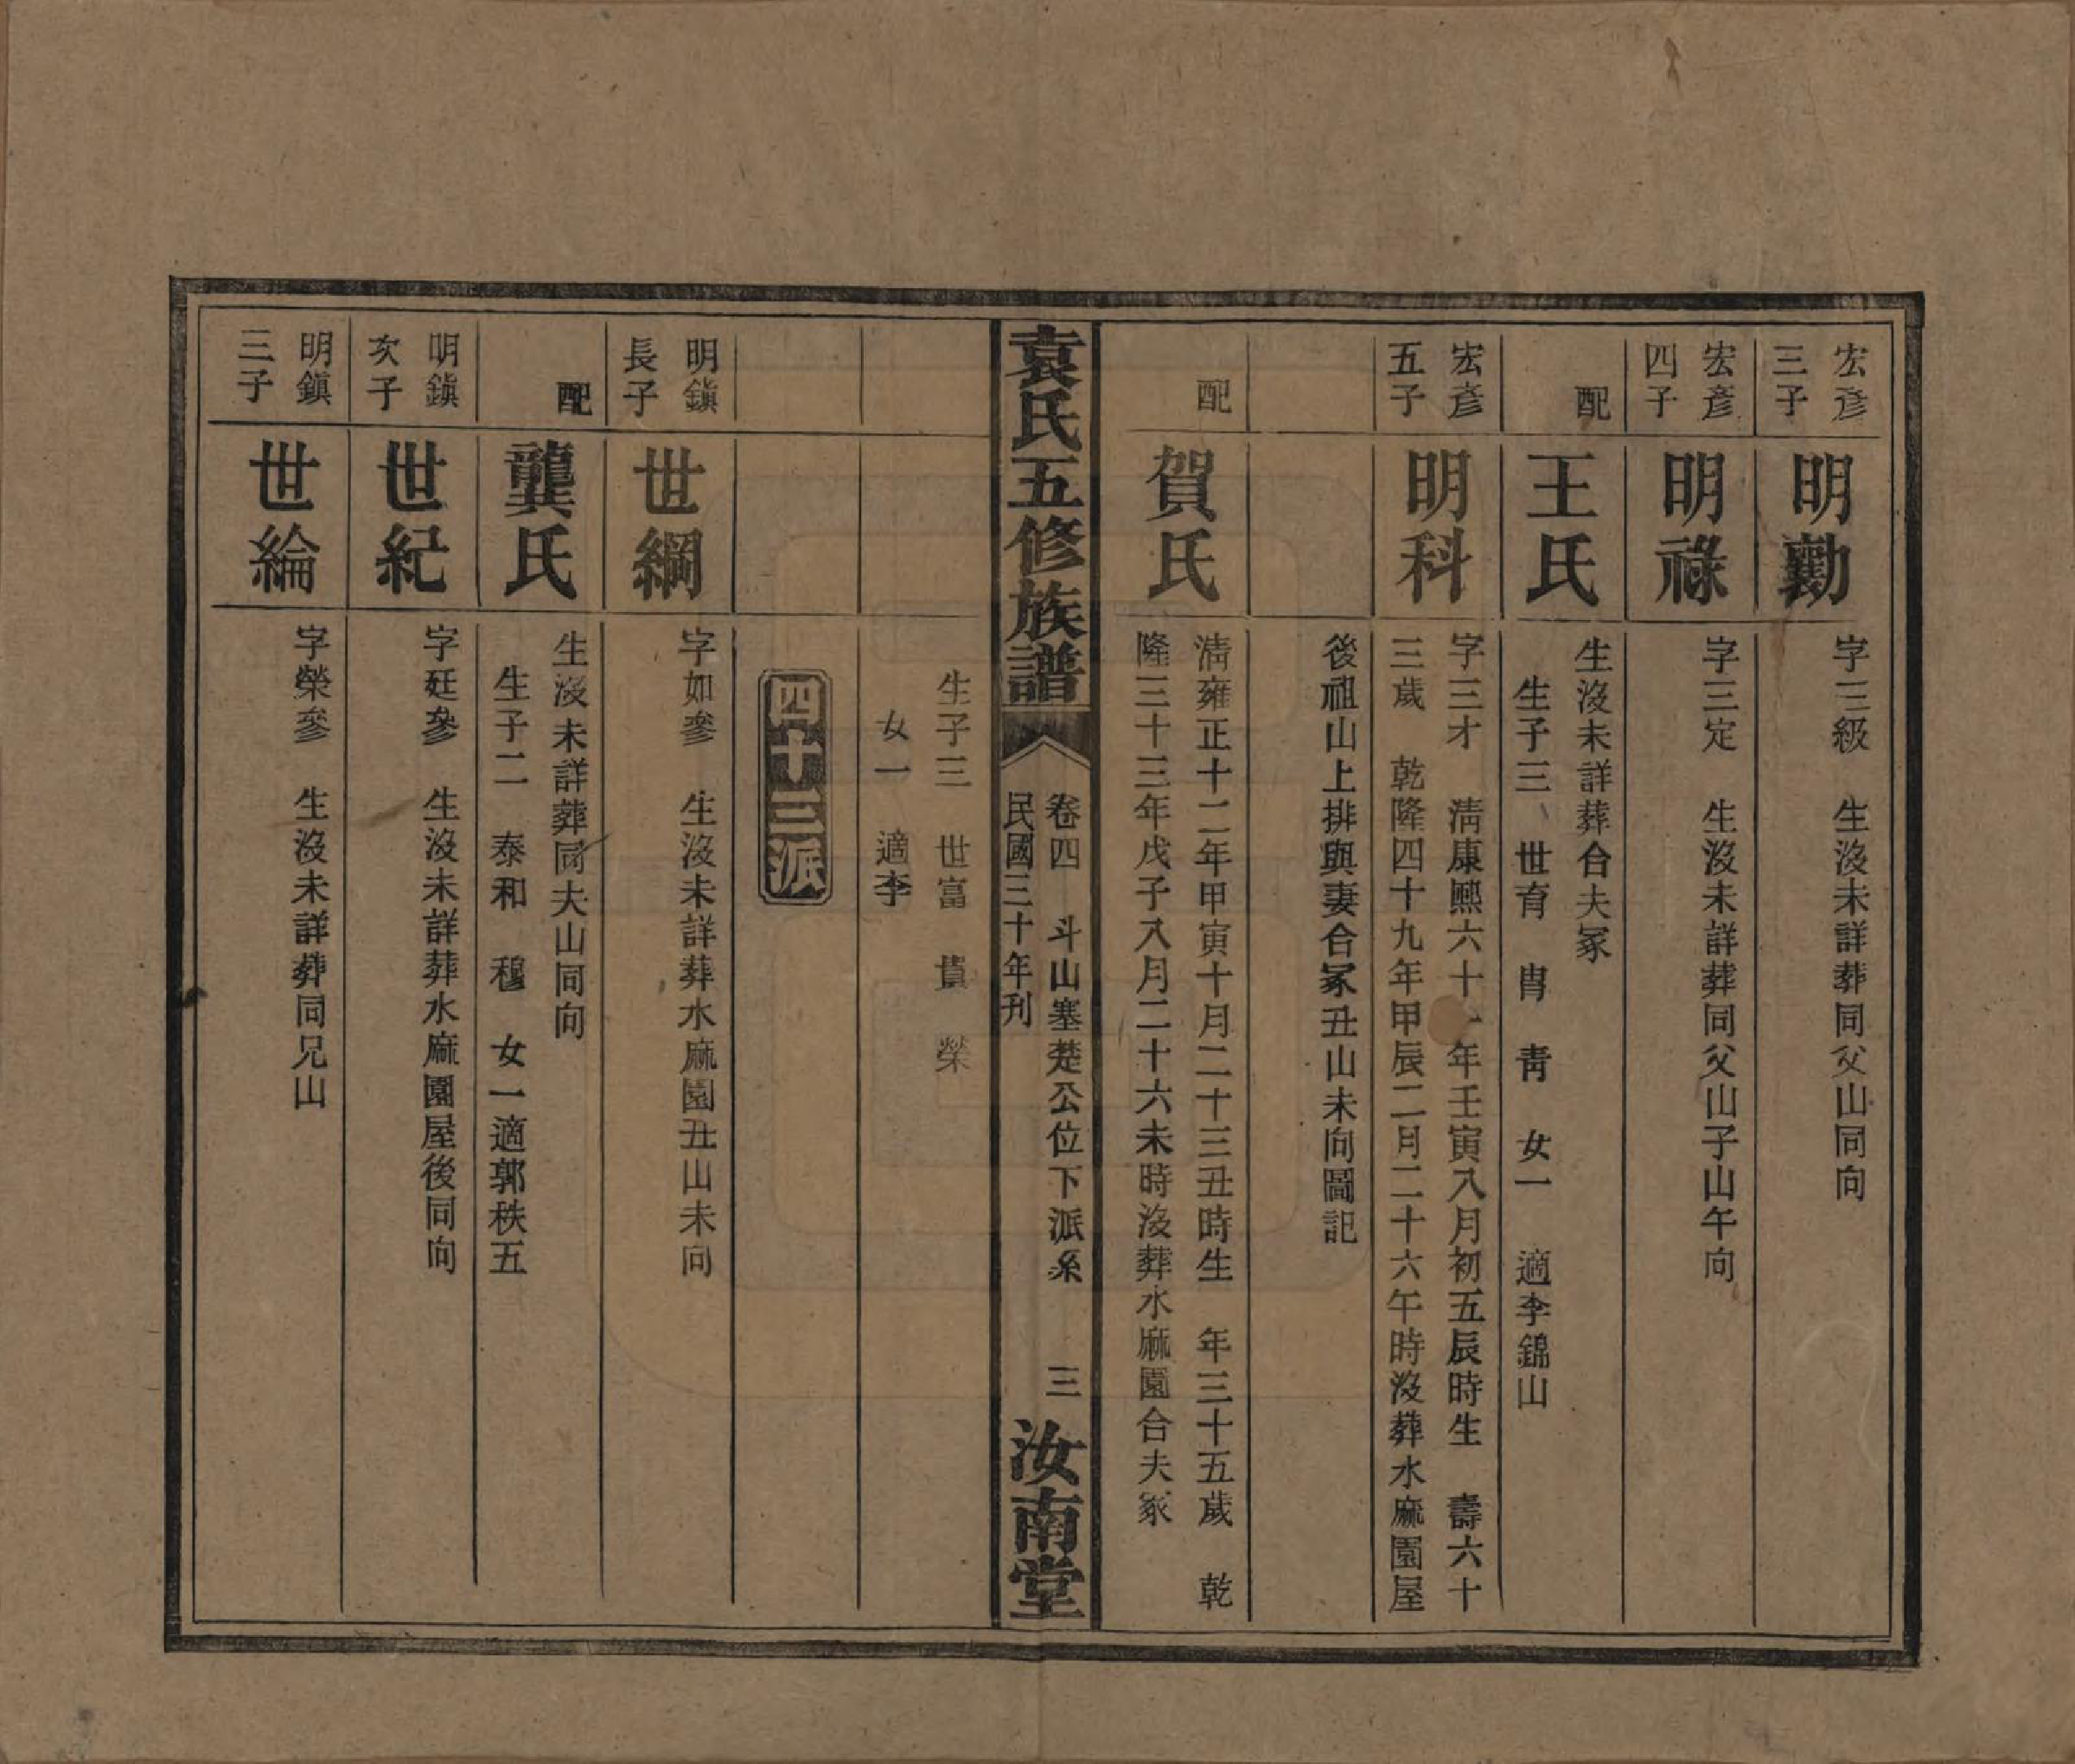 宏彥
三子
明勷
字三級　生沒未詳葬同父山同向
宏彥
四子
明祿
字三定　生沒未詳葬同父山子山午向
配
王氏
生沒未詳葬合夫冢
生子三　世育　胄　青　女一　適李錦山
宏彥
五子
明科
字三才　清康熙六十一年壬寅八月初五辰時生　壽六十
三歲　乾隆四十九年甲辰二月二十六午時沒葬水麻園屋
後祖山上排與妻合冢丑山未向圖記
配
賀氏
清雍正十二年甲寅十月二十三丑時生　年三十五歲　乾
隆三十三年戊子八月二十六未時沒葬水麻園合夫冢
袁氏五修族譜
卷四　斗山塞楚公位下派系　三
民國三十年刊
汝南堂
生子三　世富　貴　榮
女一　適李
四十三派
明鎮
長子
世綱
字如參　生沒未詳葬水麻園丑山未向
配
龔氏
生沒未詳葬同夫山同向
生子二　泰和　穆　女一適郭秩五
明鎮
次子
世紀
字廷參　生沒未詳葬水麻園屋後同向
明鎮
三子
世綸
字榮參　生沒未詳葬同兄山